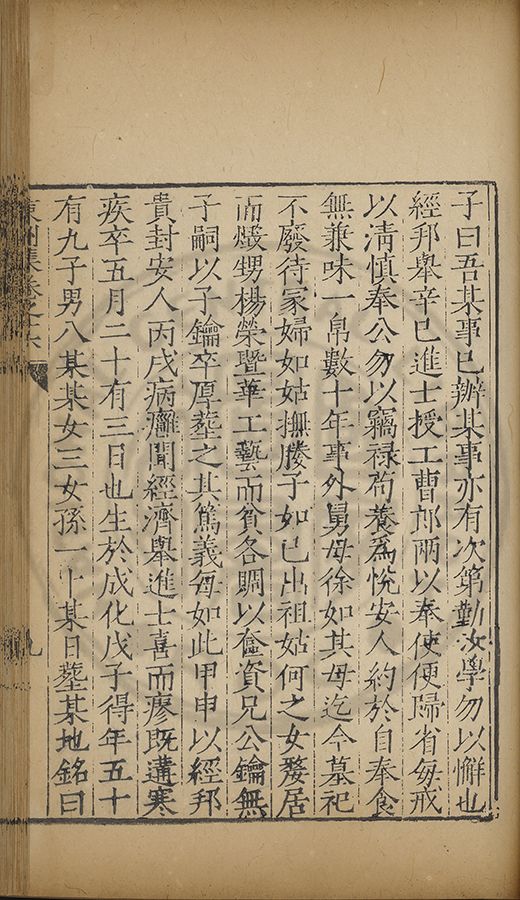 子曰吾某事已辦某事亦有次第勤汝學勿以懈也
經邦舉辛巳進士授工曹郎兩以奉使便歸省每戒
以清慎奉公勿以竊祿苟養為悅安人約於自奉食
無兼味一帛數十年事外舅母徐如其母迄今墓祀
不廢待冢婦如姑撫媵子如己出祖姑何之女嫠居
而煢甥楊榮暨華工藝而貧各賙以奩資兄公鑰無
子嗣以子鑰卒厚塟之其篤義每如此甲申以經邦
貴封安人丙戌病癰聞經濟舉進士喜而瘳既遘寒
疾卒五月二十有三日也生於成化戊子得年五十
有九子男八某某女三女孫一十某日塟某地銘曰
東洲集卷之六
九